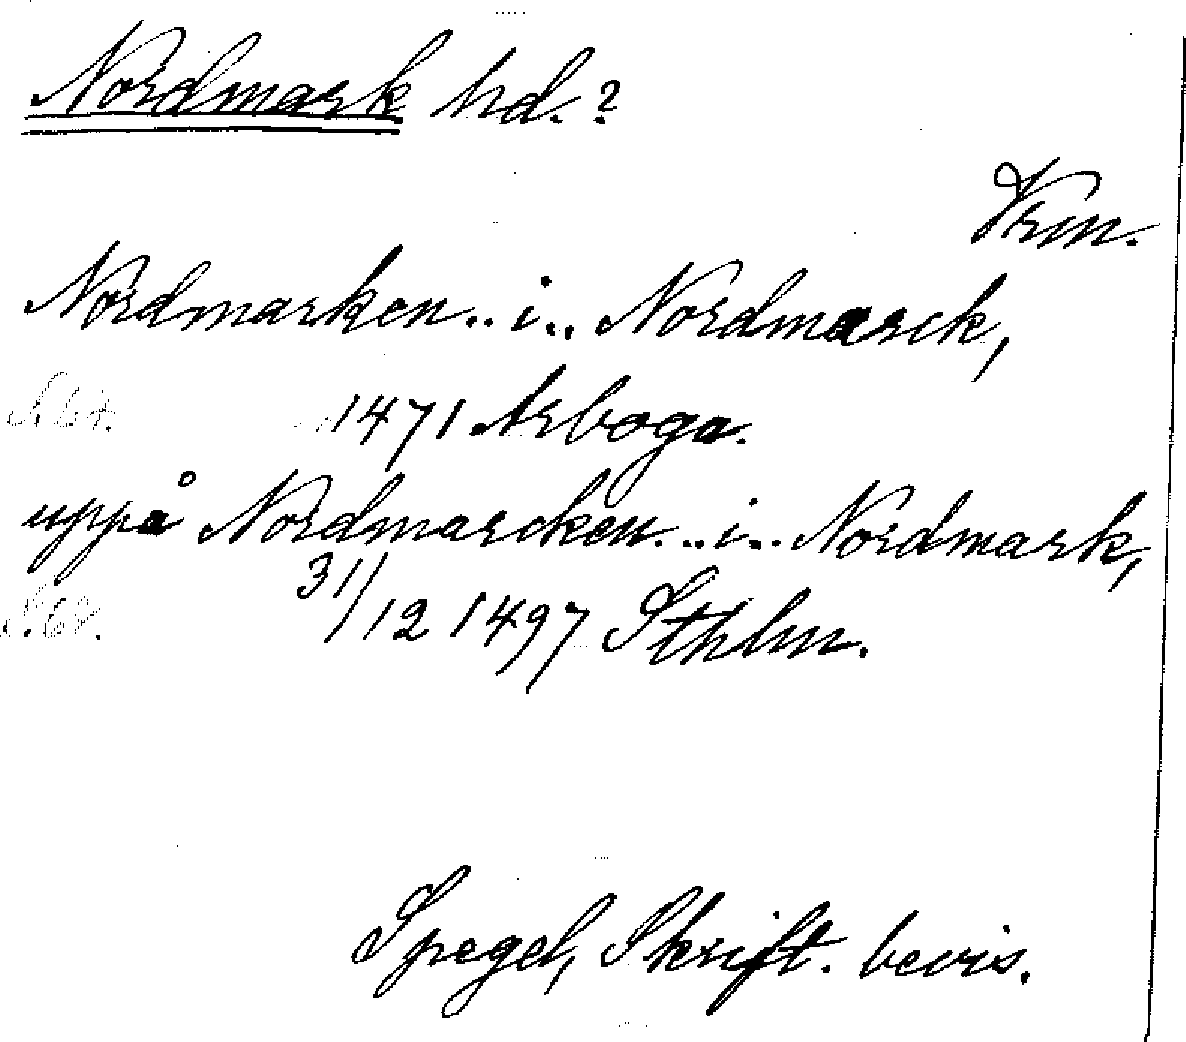 Nordmark hd.?
Vrm.
Nordmarken.. i.. Nordmarck,
S. 67. 1471 Arboga.
uppå Nordmarcken... i... Nordmark,
S. 67. 31/12 1497 Sthlm.
Spegel, Skrift. bevis.